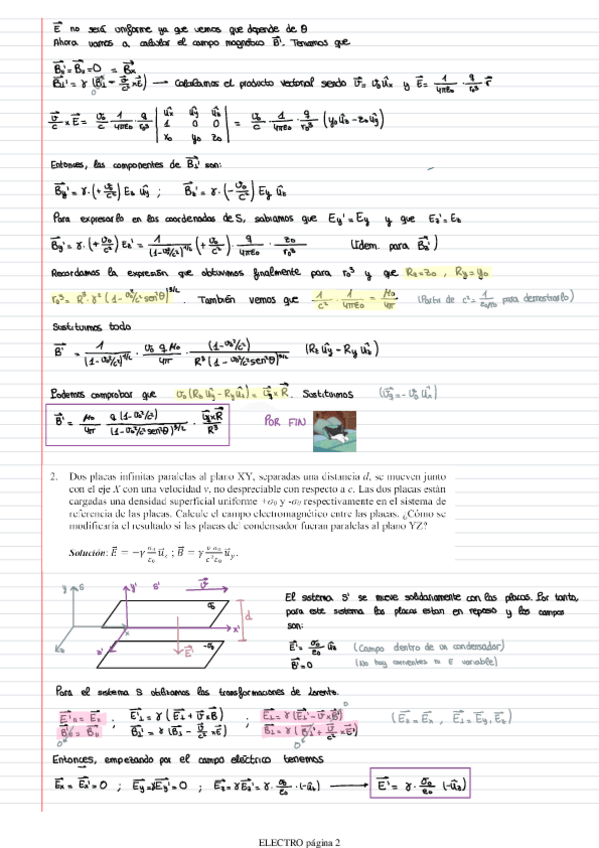 E⃗ no será uniforme ya que vemos que depende de θ
Ahora vamos a calcular el campo magnético B⃗'. Tenemos que
B⃗∥' = B⃗∥ = 0 = B⃗x
B⃗⊥' = γ (B⃗⊥ - v⃗/c² x E⃗) → Calculamos el producto vectorial siendo v⃗ = v₀ûx y E⃗ = 1/4πε₀ · q/r₀³ · r⃗
v⃗/c x E⃗ = v₀/c · 1/4πε₀ · q/r₀³ | ûx ûy ûz | 1 0 0 | x₀ y₀ z₀ | = v₀/c · 1/4πε₀ · q/r₀³ (y₀ûz - z₀ûy)
Entonces, las componentes de B⃗⊥' son:
B⃗y' = γ·(+ v₀/c²) Ez ûy ; B⃗z' = γ·(- v₀/c²) Ey ûz
Para expresarlo en las coordenadas de S, sabíamos que Ey' = Ey y que Ez' = Ez
B⃗y' = γ·(+ v₀/c²) Ez' = 1/(1-v₀²/c²)^1/2 (+ v₀/c²) · q/4πε₀ · z₀/r₀³ (Idem. para B⃗z')
Recordamos la expresión que obtuvimos finalmente para r₀³ y que Rz = z₀ , Ry = y₀
r₀³ = R³·γ³ (1 - v₀²/c² sen²θ)^3/2. También vemos que 1/c² · 1/4πε₀ = μ₀/4π (Partir de c² = 1/ε₀μ₀ para demostrarlo)
Sustituimos todo
B⃗' = 1/(1-v₀²/c²)^1/2 · v₀ q μ₀/4π · (1-v₀²/c²)^3/2 / R³ (1 - v₀²/c² sen²θ)^3/2 (Rz ûy - Ry ûz)
Podemos comprobar que v₀ (Rz ûy - Ry ûz) = v⃗q x R⃗. Sustituimos (v⃗q = - v₀ ûx)
B⃗' = μ₀/4π q (1-v₀²/c²)/(1-v₀²/c² sen²θ)^3/2 · v⃗q x R⃗/R³ POR FIN
2. Dos placas infinitas paralelas al plano XY, separadas una distancia d, se mueven junto
con el eje X con una velocidad v, no despreciable con respecto a c. Las dos placas están
cargadas una densidad superficial uniforme +σ₀ y -σ₀ respectivamente en el sistema de
referencia de las placas. Calcule el campo electromagnético entre las placas. ¿Cómo se
modificaría el resultado si las placas del condensador fueran paralelas al plano YZ?
Solución: E⃗ = −γ σ₀/ε₀ u⃗z ; B⃗ = γ v σ₀/c²ε₀ u⃗y.
y S y' S' v⃗
σ₀
d
x x' E⃗' -σ₀
El sistema S' se mueve solidariamente con las placas. Por tanto,
para este sistema las placas están en reposo y los campos
son:
E⃗' = σ₀/ε₀ ûz (Campo dentro de un condensador)
B⃗' = 0 (No hay corrientes ni E variable)
Para el sistema S utilizamos las transformaciones de Lorentz.
E⃗'∥ = E∥ ; E⃗'⊥ = γ (E⃗⊥ + v⃗xB⃗) ; E⃗⊥ = γ (E⃗⊥' - v⃗xB⃗') (E∥ = Ex , E⊥ = Ey, Ez)
B⃗'∥ = B∥ B⃗⊥' = γ (B⃗⊥ - v⃗/c² xE⃗) B⃗⊥ = γ (B⃗⊥' + v⃗/c² xE⃗')
Entonces, empezando por el campo eléctrico tenemos
E⃗x = E⃗x' = 0 ; E⃗y = γE⃗y' = 0 ; E⃗z = γE⃗z' = γ· σ₀/ε₀ · (-ûz) → E⃗' = γ · σ₀/ε₀ (-ûz)
ELECTRO página 2